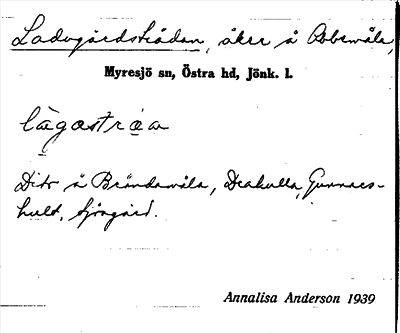 Ladugårdsträdan, åker å Obbemåla,
Myresjö sn, Östra hd, Jönk. l.
lägastrea
Dito å Brändamåla, Drakulla, Gunnars-
hult, Sjögård.
Annalisa Anderson 1939